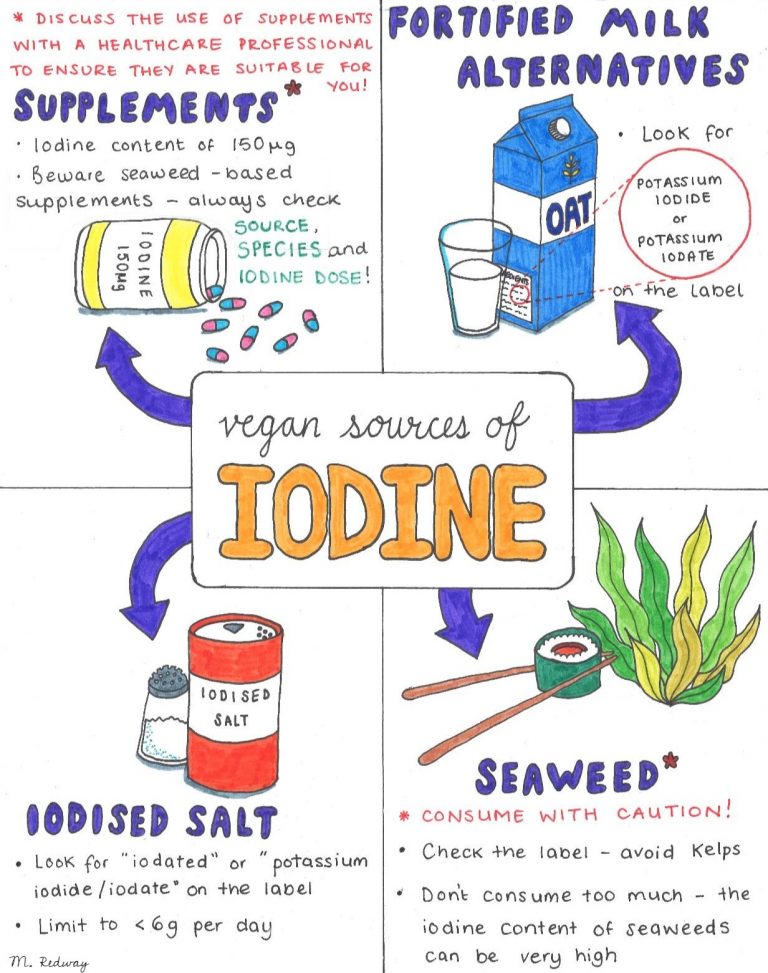 * DISCUSS THE USE OF SUPPLEMENTS
WITH A HEALTHCARE PROFESSIONAL
TO ENSURE THEY ARE SUITABLE FOR
YOU!
SUPPLEMENTS*
· Iodine content of 150µg
· Beware seaweed-based
supplements - always check
SOURCE,
SPECIES and
IODINE DOSE!
IODINE
150µg
FORTIFIED MILK
ALTERNATIVES
· Look for
POTASSIUM
IODIDE
or
POTASSIUM
IODATE
on the label
OAT
vegan sources of
IODINE
IODISED
SALT
IODISED SALT
· Look for "iodated" or "potassium
iodide/iodate" on the label
· Limit to <6g per day
M. Redway
SEAWEED*
* CONSUME WITH CAUTION!
· Check the label - avoid Kelps
· Don't consume too much - the
iodine content of seaweeds
can be very high